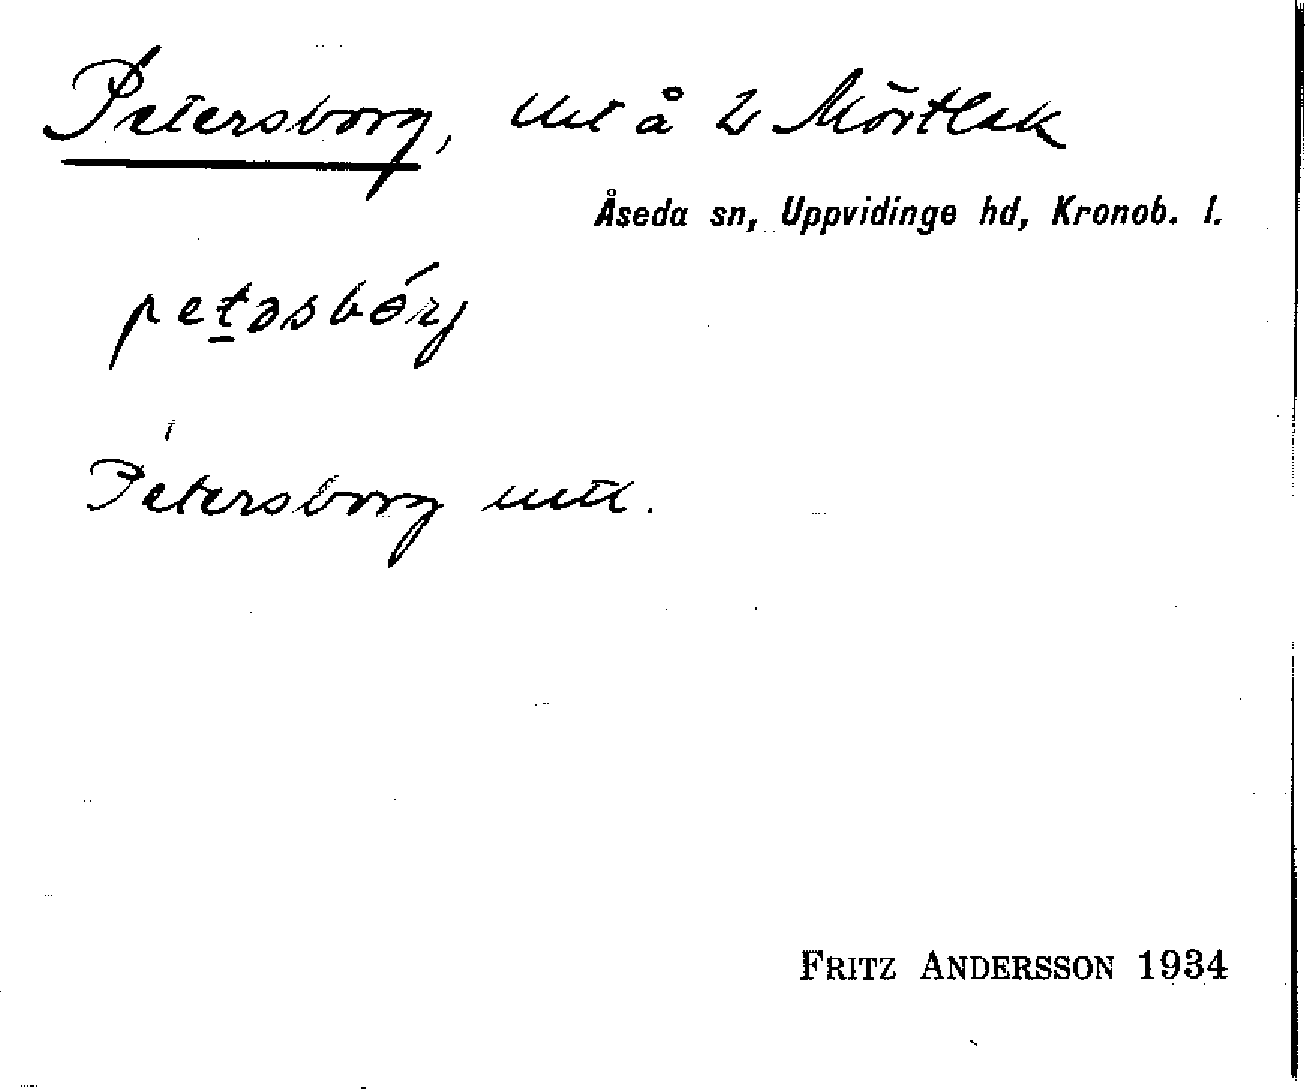 Petersborg, utj å 2 Mörtlek
Åseda sn, Uppvidinge hd, Kronob. l.
petəsbórj
Petersborg
FRITZ ANDERSSON 1934